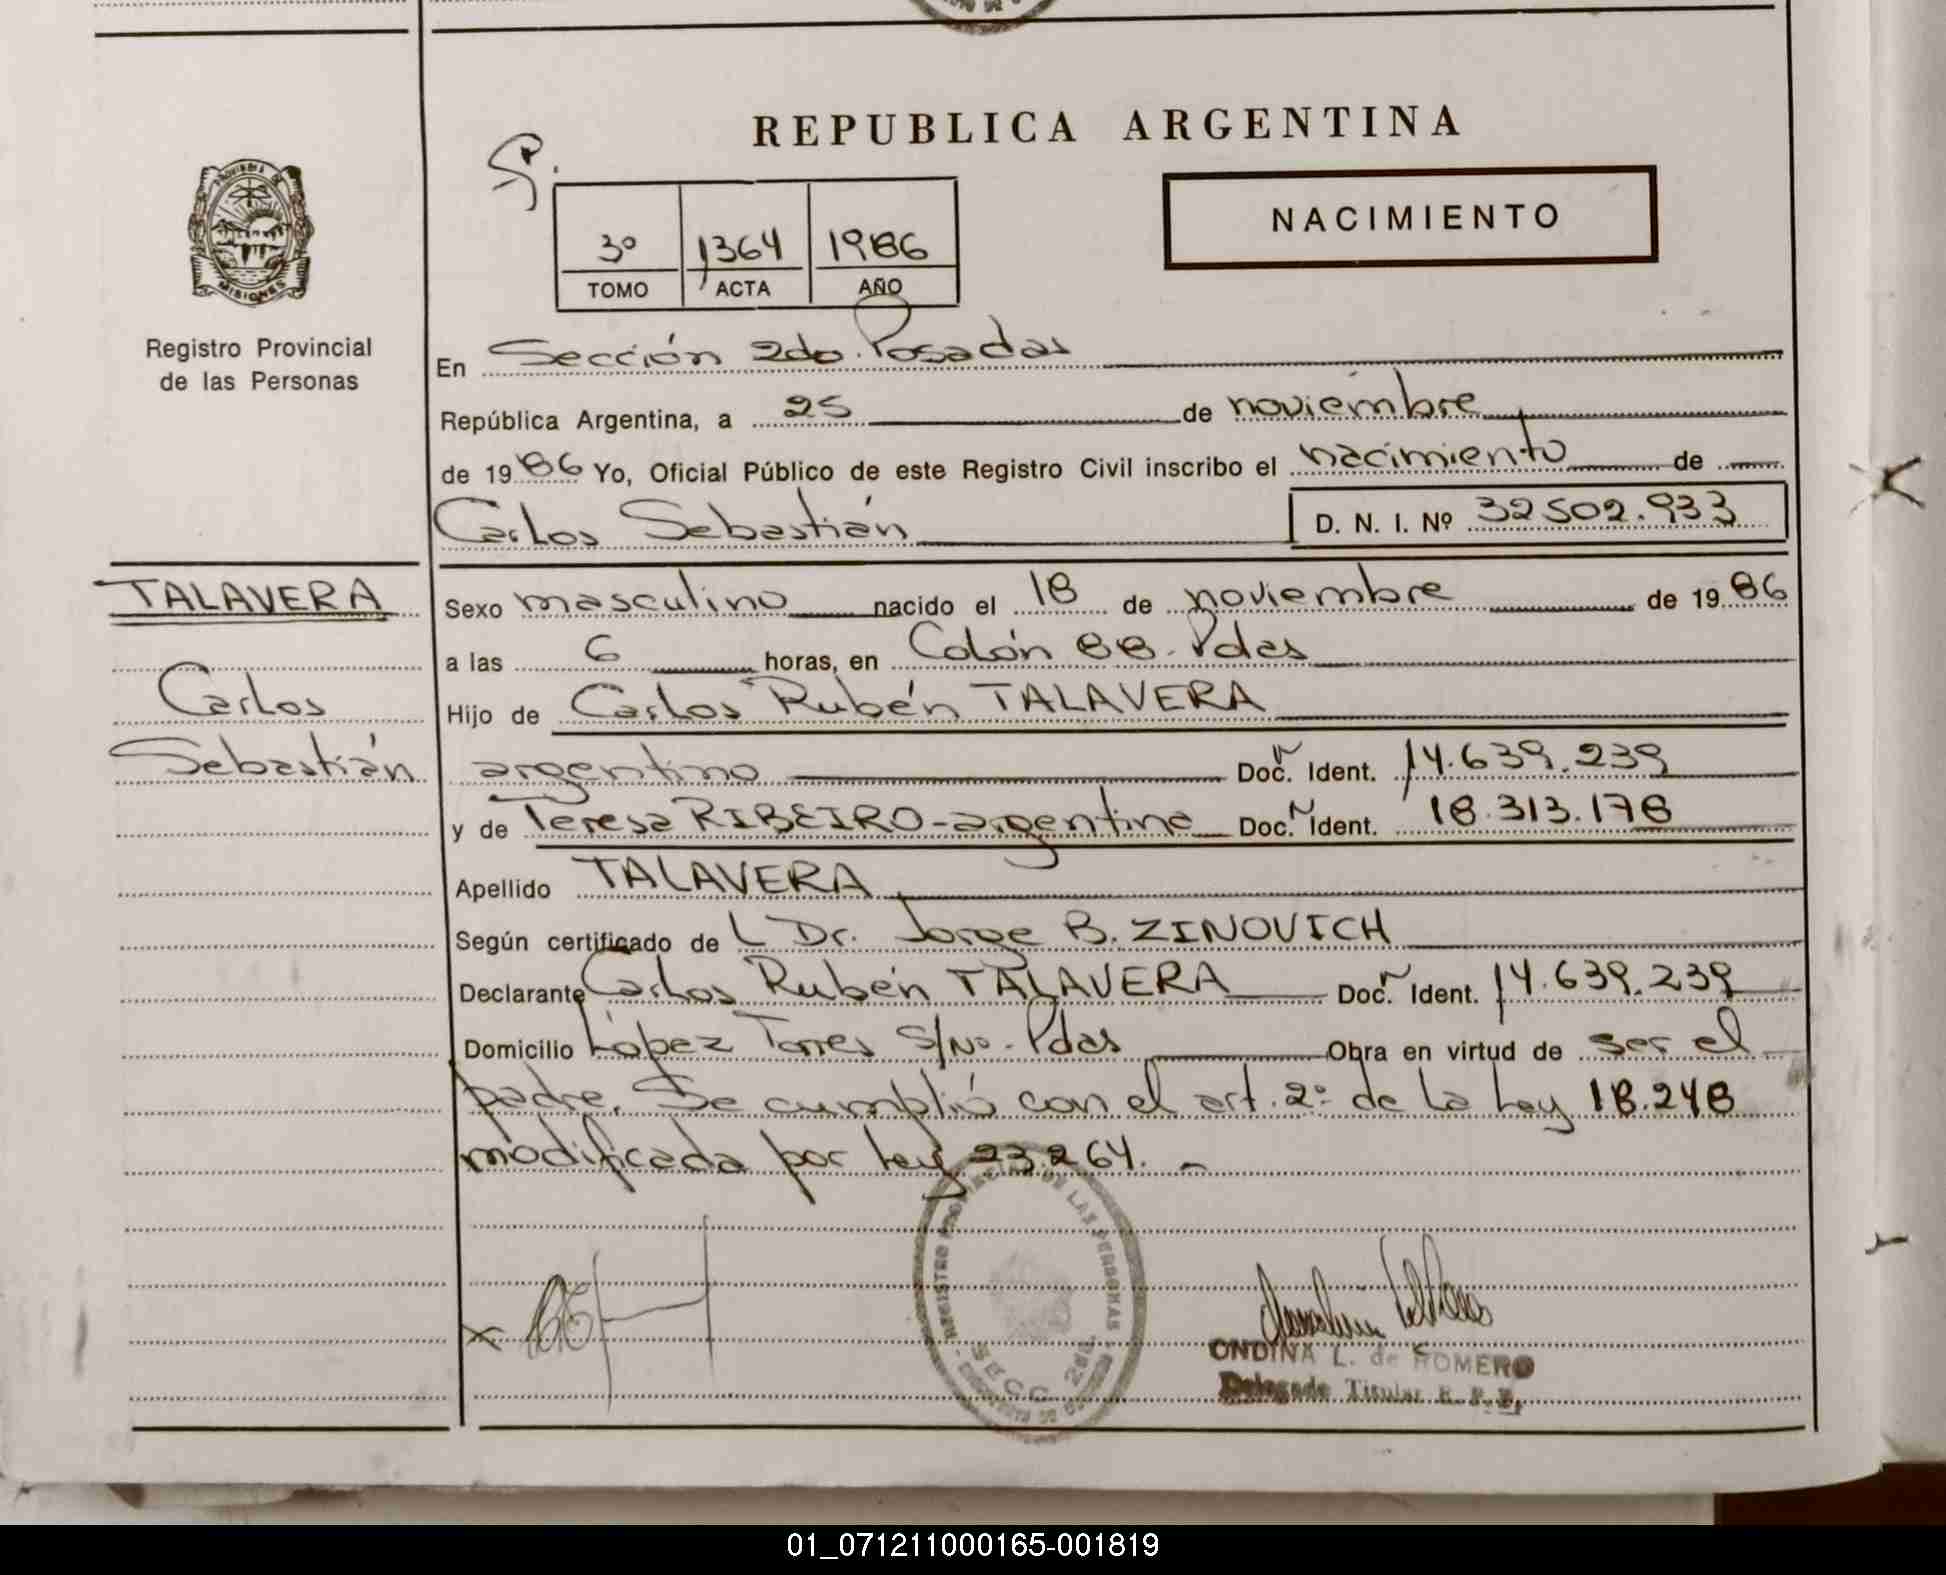 REPUBLICA ARGENTINA
NACIMIENTO
3º 1364 1986
TOMO ACTA AÑO
PROVINCIA DE
MISIONES
Registro Provincial
de las Personas
En Sección 2do. Posadas
República Argentina, a 25 de noviembre
de 1986 Yo, Oficial Público de este Registro Civil inscribo el nacimiento de
Carlos Sebastián D. N. I. Nº 32502.933
TALAVERA
Carlos
Sebastián
Sexo masculino nacido el 18 de noviembre de 1986
a las 6 horas, en Colón 88. Pdas
Hijo de Carlos Rubén TALAVERA
argentino Doc. Ident. 14.639.239
y de Teresa RIBEIRO-argentina Doc. Ident. 18.313.178
Apellido TALAVERA
Según certificado de L Dr. Jorge B. ZINOVICH
Declarante Carlos Rubén TALAVERA Doc. Ident. 14.639.239
Domicilio López Torres S/Nº. Pdas Obra en virtud de ser el
padre. Se cumplió con el art. 2º de la Ley 18.248
modificada por ley 23.264.-
REGISTRO PROVINCIAL DE LAS PERSONAS
SECC. 2da.
ONDINA L. de ROMERO
Delegada Titular R. P. P.
01_071211000165-001819